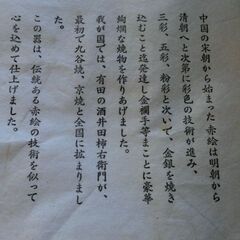 中国の宋朝から始まった赤絵は明朝から
清朝へと次第に彩色の技術が進み、
三彩、五彩、粉彩と次いで、金銀を焼き
込むこと迄発達し金襴手等まことに豪華
絢爛な焼物を作りあげました。
我が国では、有田の酒井田柿右衛門が、
最初で九谷焼、京焼と全国に拡まりまし
た。
この器は、伝統ある赤絵の技術を似って
心を込めて仕上げました。